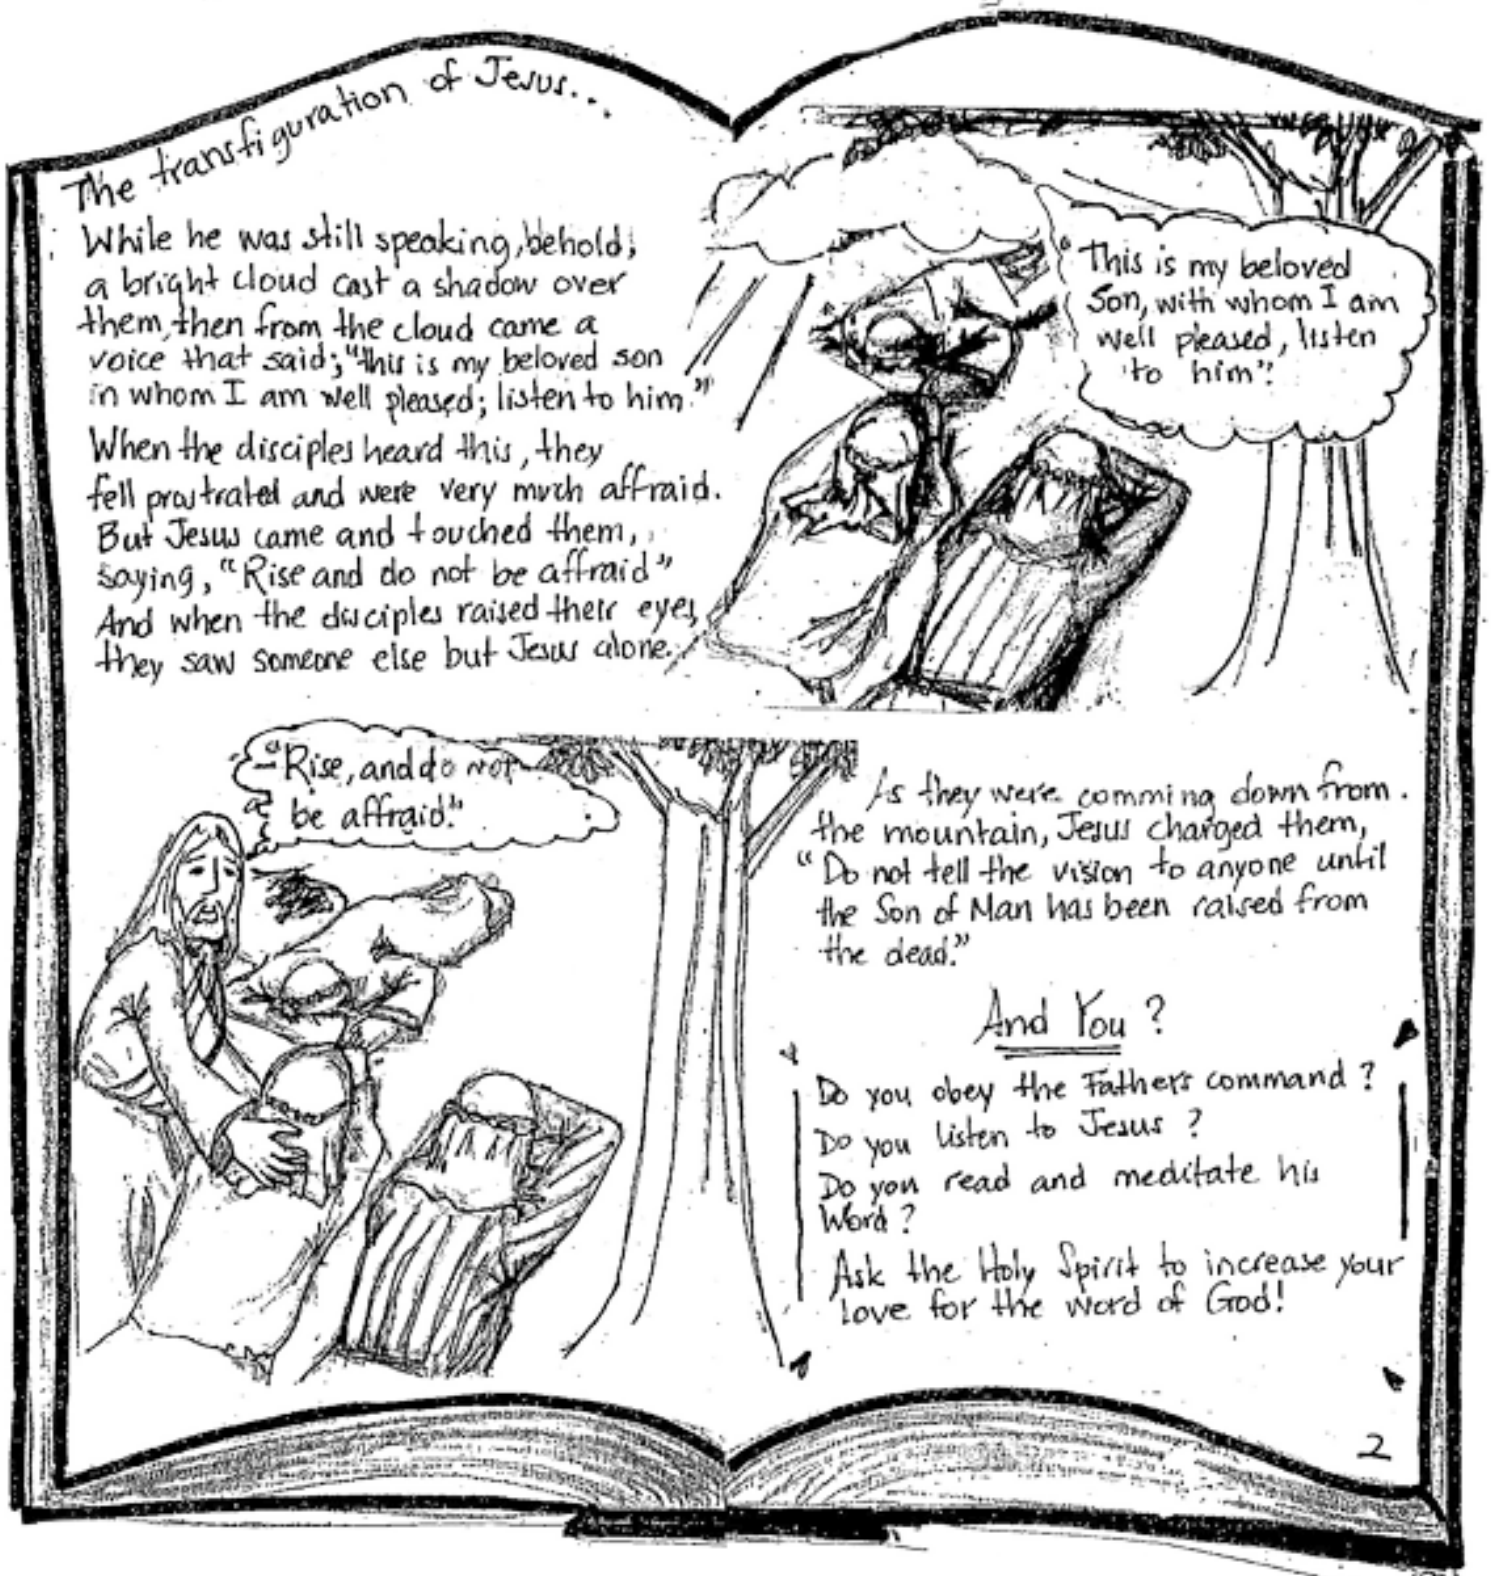 The transfiguration of Jesus...
While he was still speaking, behold,
a bright cloud cast a shadow over
them, then from the cloud came a
voice that said; "this is my beloved son
in whom I am well pleased; listen to him."
When the disciples heard this, they
fell prostrated and were very much affraid.
But Jesus came and touched them,
saying, "Rise and do not be affraid"
And when the disciples raised their eyes,
they saw someone else but Jesus alone.
"This is my beloved
Son, with whom I am
well pleased, listen
to him".
"Rise, and do not
be affraid."
As they were comming down from
the mountain, Jesus charged them,
"Do not tell the vision to anyone until
the Son of Man has been raised from
the dead."
And You?
Do you obey the Fathers command?
Do you listen to Jesus?
Do you read and meditate his
Word?
Ask the Holy Spirit to increase your
love for the word of God!
2